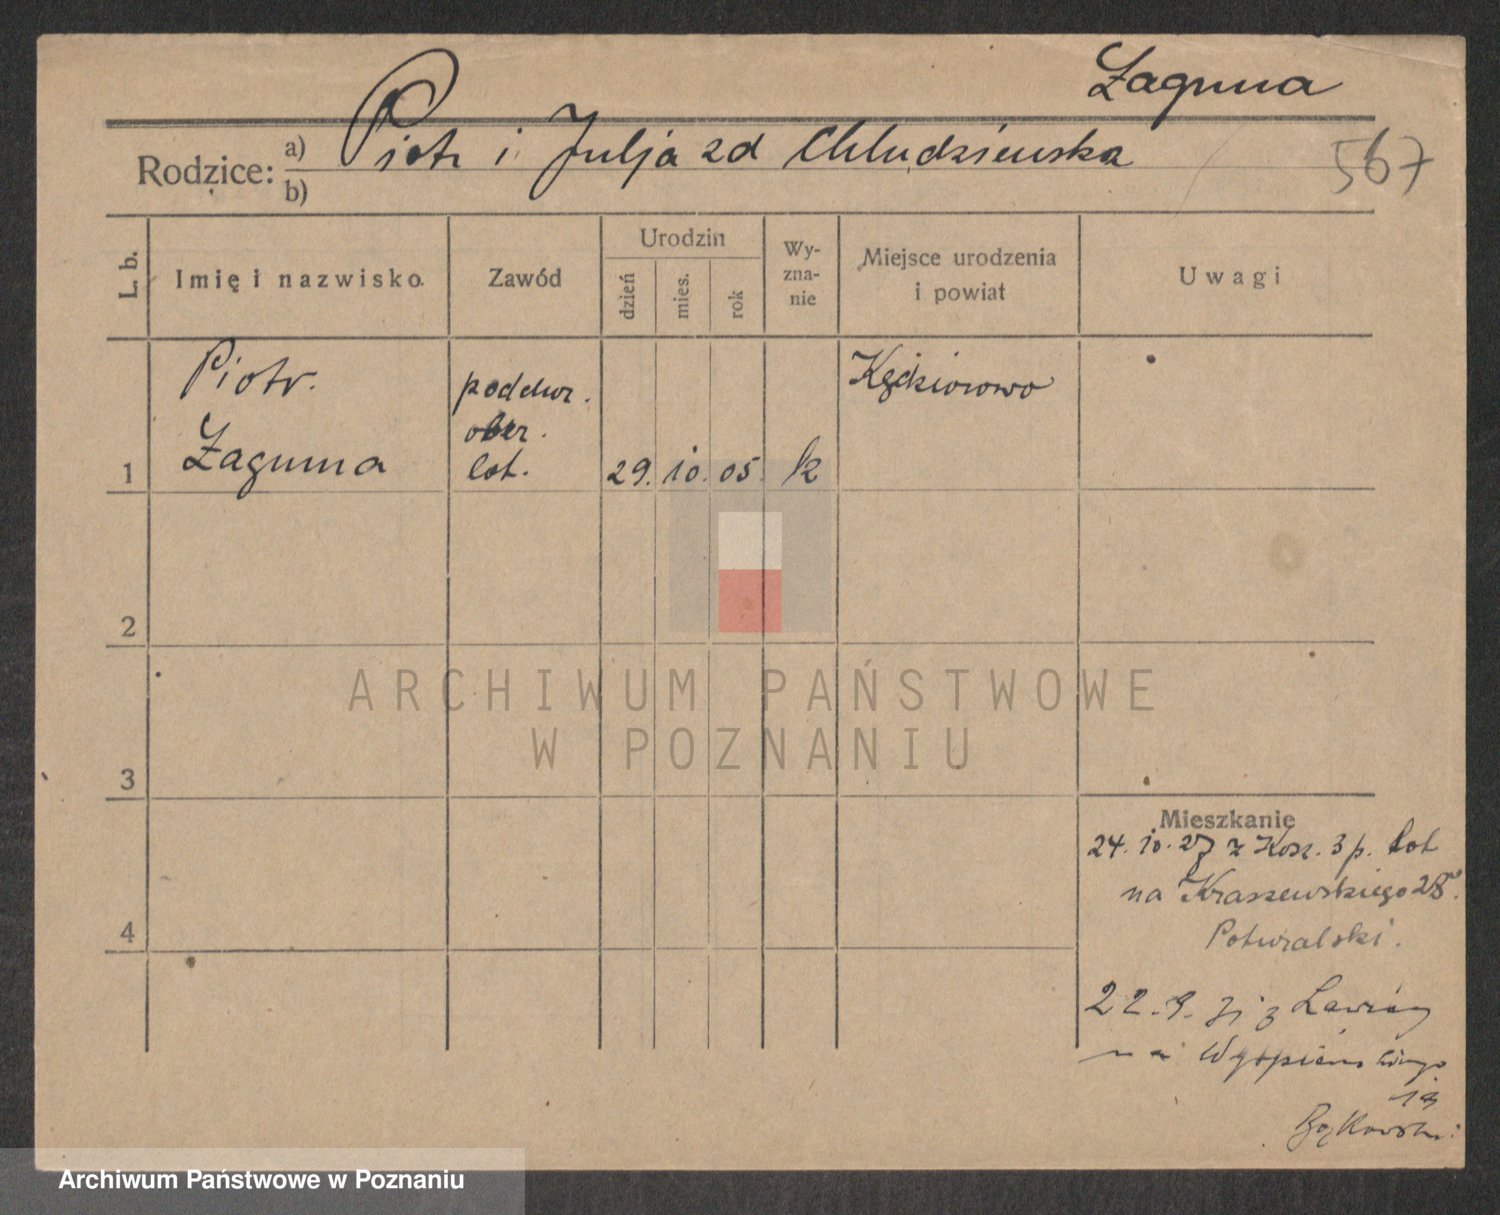 Żaguna
Rodzice: a) Piotr i Julja zd Chludzieńska
b)
567
L. b.
Imię i nazwisko
Zawód
Urodzin
dzień
mies.
rok
Wy-
zna-
nie
Miejsce urodzenia
i powiat
Uwagi
1
Piotr.
Żaguna
podchor.
obser.
lot.
29. 10. 05. k
Kędziorowo
2
3
4
Mieszkanie
24. 10. 27 z Kosz. 3 p. lot
na Kraszewskiego 28
Potwalski.
22. 9. z Ławicy
na Wyspiańskiego
ARCHIWUM PAŃSTWOWE
W POZNANIU
Archiwum Państwowe w Poznaniu